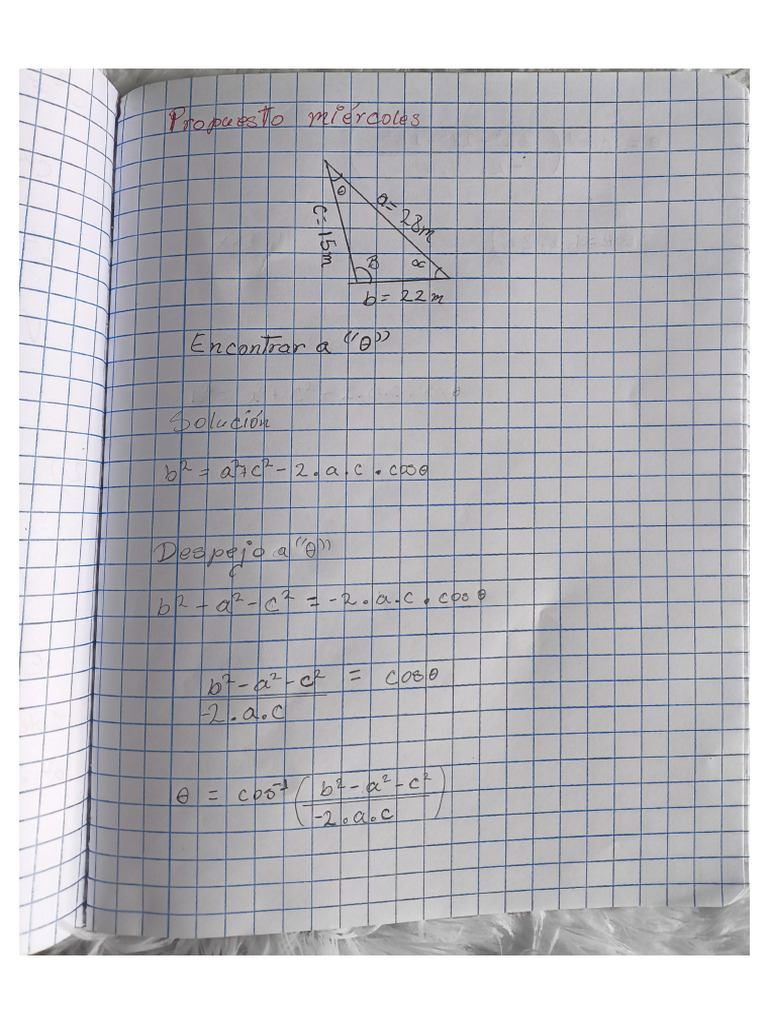 Propuesto miércoles
θ
a = 28m
c = 15m
B
α
b = 22 m
Encontrar a "θ"
Solución
b² = a²+c² - 2 . a . c . cosθ
Despejo a "θ"
c
b² - a² - c² = -2 . a . c . cos θ
b² - a² - c² = cosθ
-2 . a . c
θ = cos⁻¹ ( b² - a² - c² )
-2 . a . c